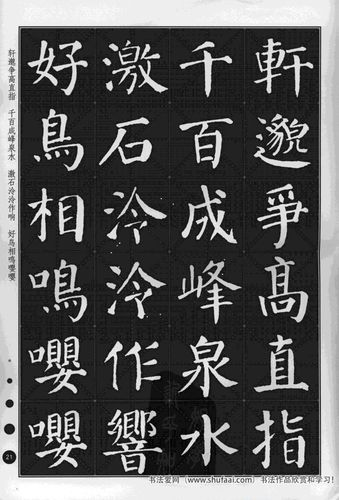 軒邈爭高直指
千百成峰泉水
激石泠泠作響
好鳥相鳴嚶嚶
轩邈争高直指　千百成峰泉水　激石泠泠作响　好鸟相鸣嘤嘤
21
书法爱网（www.shufaai.com）书法作品欣赏和学习!